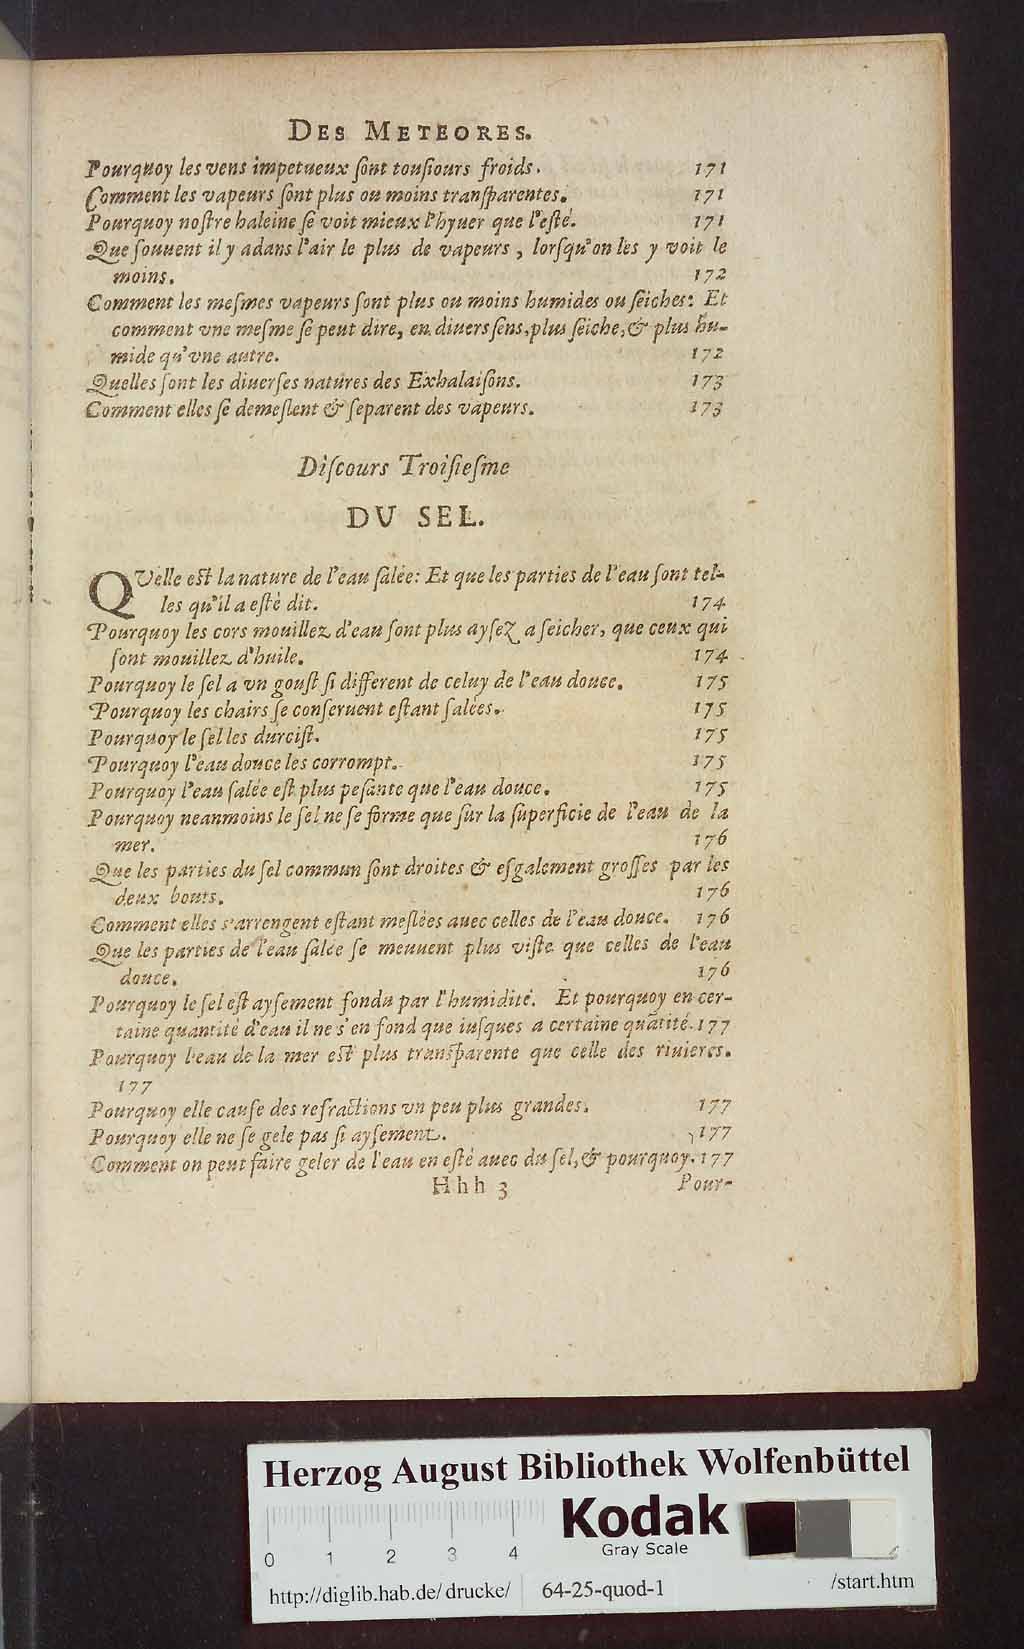 DES METEORES.
Pourquoy les vens impetueux ſont touſiours froids. 171
Comment les vapeurs ſont plus ou moins tranſparentes. 171
Pourquoy noſtre haleine ſe voit mieux l'hyuer que l'eſté. 171
Que ſouuent il y a dans l'air le plus de vapeurs, lorſqu'on les y voit le
moins. 172
Comment les meſmes vapeurs ſont plus ou moins humides ou ſeiches: Et
comment vne meſme ſe peut dire, en diuers ſens, plus ſeiche, & plus hu-
mide qu'vne autre. 172
Quelles ſont les diuerſes natures des Exhalaiſons. 173
Comment elles ſe demeſlent & ſeparent des vapeurs. 173
Diſcours Troiſieſme
DV SEL.
QVelle eſt la nature de l'eau ſalée: Et que les parties de l'eau ſont tel-
les qu'il a eſté dit. 174
Pourquoy les cors mouillez d'eau ſont plus ayſez a ſeicher, que ceux qui
ſont mouillez d'huile. 174
Pourquoy le ſel a vn gouſt ſi different de celuy de l'eau douce. 175
Pourquoy les chairs ſe conſeruent eſtant ſalées. 175
Pourquoy le ſel les durciſt. 175
Pourquoy l'eau douce les corrompt. 175
Pourquoy l'eau ſalée eſt plus peſante que l'eau douce. 175
Pourquoy neanmoins le ſel ne ſe forme que ſur la ſuperficie de l'eau de la
mer. 176
Que les parties du ſel commun ſont droites & eſgalement groſſes par les
deux bouts. 176
Comment elles s'arrengent eſtant meſlées auec celles de l'eau douce. 176
Que les parties de l'eau ſalée ſe meuuent plus viſte que celles de l'eau
douce. 176
Pourquoy le ſel eſt ayſement fondu par l'humidité. Et pourquoy en cer-
taine quantité d'eau il ne s'en fond que iuſques a certaine quãtité. 177
Pourquoy l'eau de la mer eſt plus tranſparente que celle des riuieres.
177
Pourquoy elle cauſe des refractions vn peu plus grandes. 177
Pourquoy elle ne ſe gele pas ſi ayſement. 177
Comment on peut faire geler de l'eau en eſté auec du ſel, & pourquoy. 177
Hhh 3 Pour-
Herzog August Bibliothek Wolfenbüttel
Kodak
Gray Scale
0 1 2 3 4
http://diglib.hab.de/drucke/ 64-25-quod-1 /start.htm